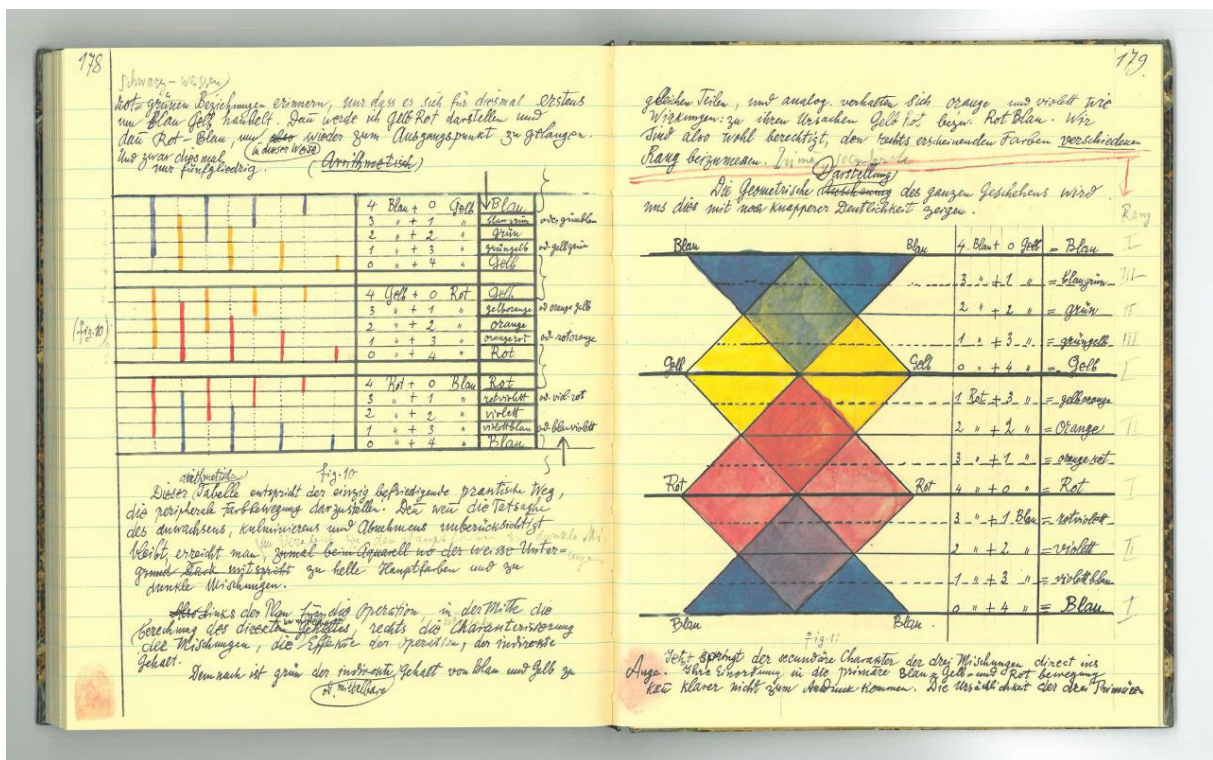 178
Schwarz-weissen)
rot-grünen Beziehungen erinnern, nur dass es sich für diesmal erstens
um Blau Gelb handelt. Dann werde ich Gelb Rot darstellen und
dañ Rot-Blau, um wieder zum Ausgangspunkt zu gelangen.
(in dieser Weise
Und zwar diesmal
nur fünfgliedrig. (Arithmetisch)
4 Blau + 0 Gelb Blau
3 " + 1 " blaugrün oder grünblau
2 " + 2 " grün
1 " + 3 " grüngelb od. gelbgrün
0 " + 4 " Gelb
4 Gelb + 0 Rot Gelb
3 " + 1 " gelborange od orange gelb
(fig. 10) 2 " + 2 " orange
1 " + 3 " orangerot od. rotorange
0 " + 4 " Rot
4 Rot + 0 Blau Rot
3 " + 1 " rotviolett od. viol-rot
2 " + 2 " violett
1 " + 3 " violettblau od blauviolett
0 " + 4 " Blau
fig. 10
arithmetischen
Dieser Tabelle entspricht der einzig befriedigende praktische Weg,
die peripherale Farbbewegung darzustellen. Den weñ die Tatsache
des Anwachsens, Kulminierens und Abnehmens unberücksichtigt
bleibt, erreicht man, zumal beim Aquarell wo der weisse Unter=
grund stark mitspricht zu helle Hauptfarben und zu
dunkle Mischungen.
Links der Plan für die Operation in der Mitte die
Berechnung des direkten Gehaltes, rechts die Charakterisierung
der Mischungen, die Effekte der Operation, der indirekte
Gehalt.
Demnach ist grün der indirekte Gehalt von Blau und Gelb zu
od. mittelbare
179.
gleichen Teilen, und analog verhalten sich orange und violett wie
Wirkungen: zu ihren Ursachen Gelb Rot bezw. Rot Blau. Wir
sind also wohl berechtigt, den rechts erscheinenden Farben verschiedenen
Rang beizumessen.
Darstellung
Die Geometrische des ganzen Geschehens wird
uns dies mit noch knapperer Deutlichkeit zeigen.
Rang
Blau Blau 4 Blau + 0 Gelb = Blau I
3 " + 1 " = blaugrün III
2 " + 2 " = grün II
1 " + 3 " = grüngelb III
Gelb Gelb 0 " + 4 " = Gelb I
1 Rot + 3 " = gelborange
2 " + 2 " = Orange II
3 " + 1 " = orangerot
Rot Rot 4 " + 0 " = Rot I
3 " + 1 Blau = rotviolett
2 " + 2 " = violett II
1 " + 3 " = violettblau
0 " + 4 " = Blau I
Blau Blau.
fig. 11
Jetzt springt der secundäre Charakter der drei Mischungen direct ins
Auge. Ihre Einordnung in die primäre Blau= Gelb= und Rot bewegung
kañ klarer nicht zum Ausdruck kommen. Die Ursächlichkeit der drei Primären